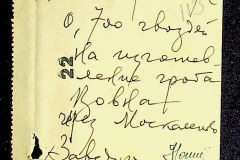 0,700 гвоздей
на изготов-
ление гроба
Вовна
через Москаленко
22